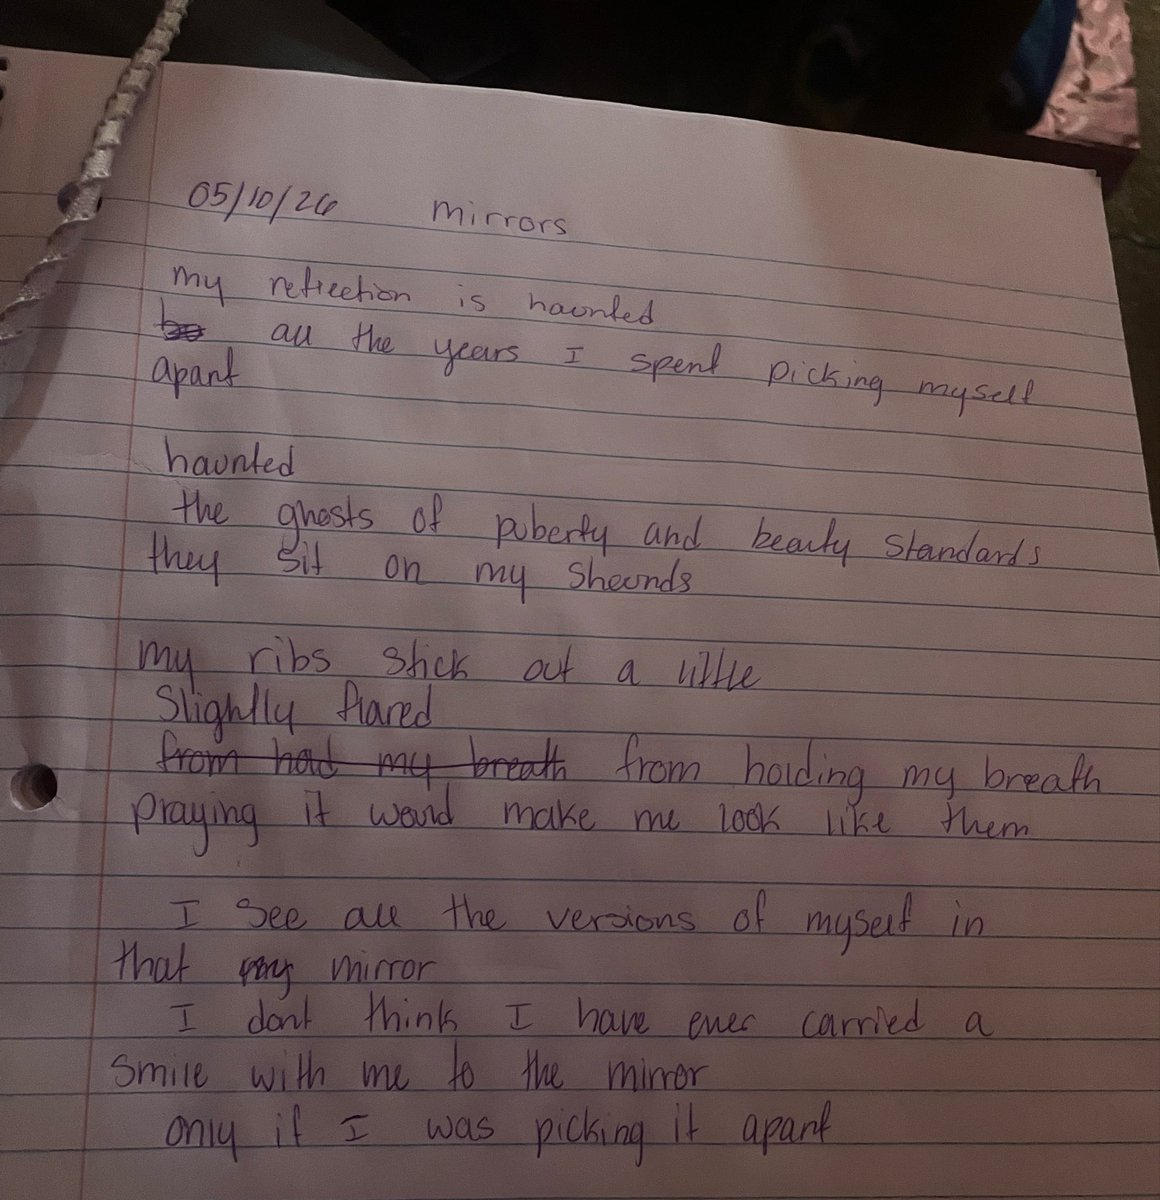 05/10/26 mirrors
my reflection is haunted
all the years I spent picking myself
apart
haunted
the ghosts of puberty and beauty standards
they sit on my
my ribs stick out a little
Slightly flared
from had my breath from holding my breath
praying it would make me look like them
I see all the versions of myself in
that my mirror
I dont think I have ever carried a
smile with me to the mirror
only if I was picking it apart